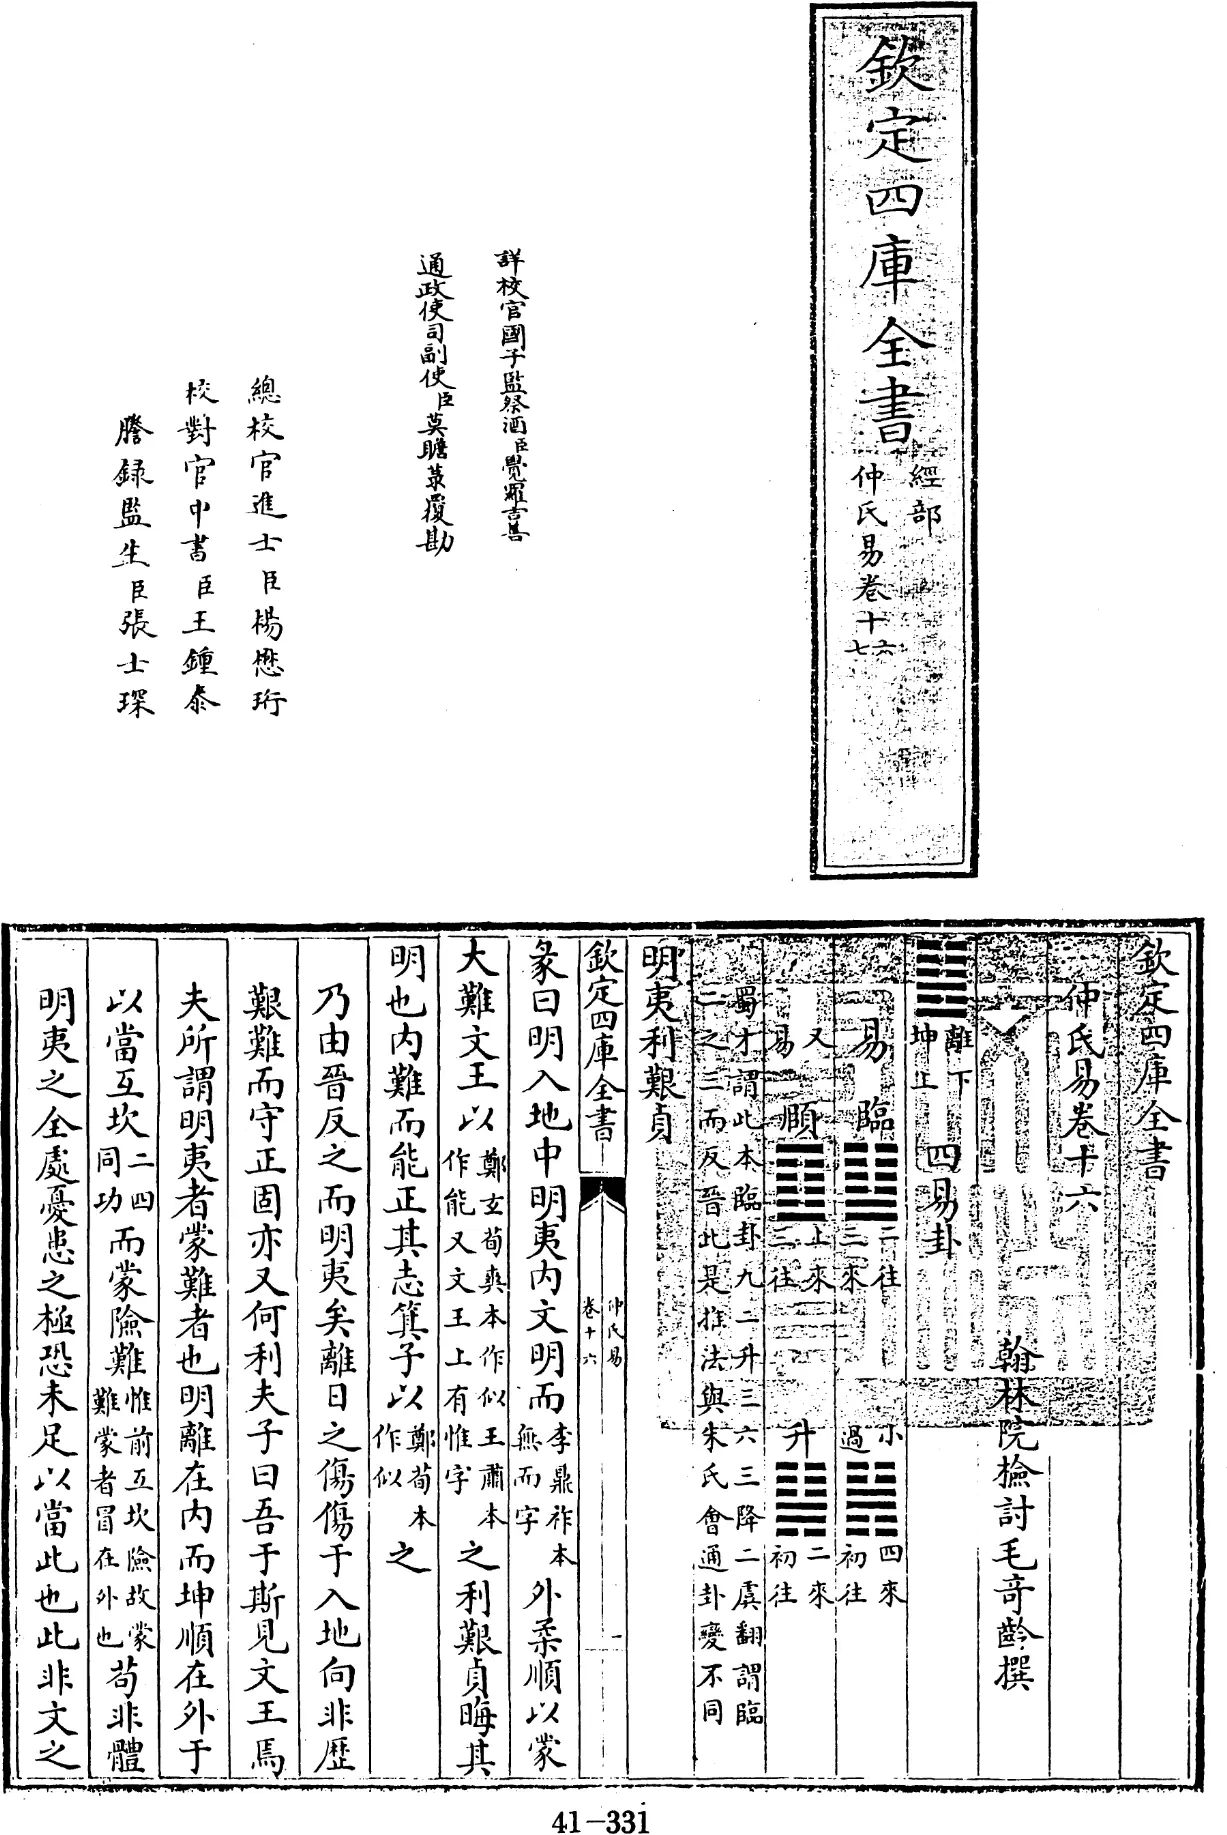 欽定四庫全書
經部
仲氏易卷十六
七
詳校官國子監祭酒臣覺羅吉善
通政使司副使臣莫瞻菉覆勘
總校官進士臣楊懋珩
校對官中書臣王鍾泰
謄録監生臣張士琛
欽定四庫全書
仲氏易卷十六
翰林院檢討毛奇齡撰
離下
坤上
四易卦
易
臨
二往
三來
小過
四來
初往
又易
頤
上來
三往
升
二來
初往
蜀才謂此本臨卦九二升三六三降二虞翻謂臨
二之三而反晉此是推法與朱氏會通卦變不同
明夷利艱貞
欽定四庫全書
仲氏易
卷十六
一
彖曰明入地中明夷内文明而李鼎祚本無而字外柔順以蒙
大難文王以鄭玄荀爽本作似王肅本作能又文王上有惟字之利艱貞晦其
明也内難而能正其志箕子以鄭荀本作似之
乃由晉反之而明夷矣離日之傷傷于入地向非歷
艱難而守正固亦又何利夫子曰吾于斯見文王焉
夫所謂明夷者蒙難者也明離在内而坤順在外于
以當互坎二四同功而蒙險難惟前互坎險故蒙難蒙者冒在外也茍非體
明夷之全處憂患之極恐未足以當此也此非文之
41-331